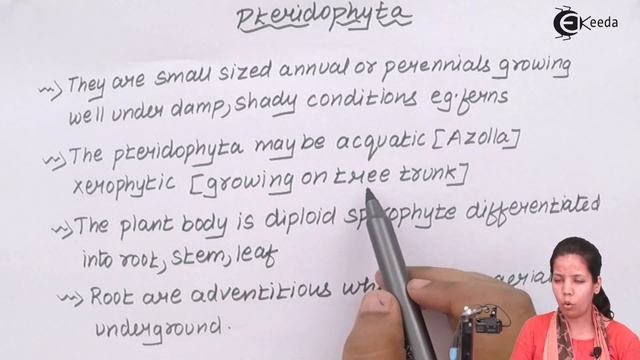 Pteridophyta
EKeeda
They are small sized annual or perennials growing
well under damp, shady conditions eg. ferns
The pteridophyta may be acquatic [Azolla]
xerophytic [growing on tree trunk]
The plant body is diploid sporophyte differentiated
into root, stem, leaf
Root are adventitious
underground.